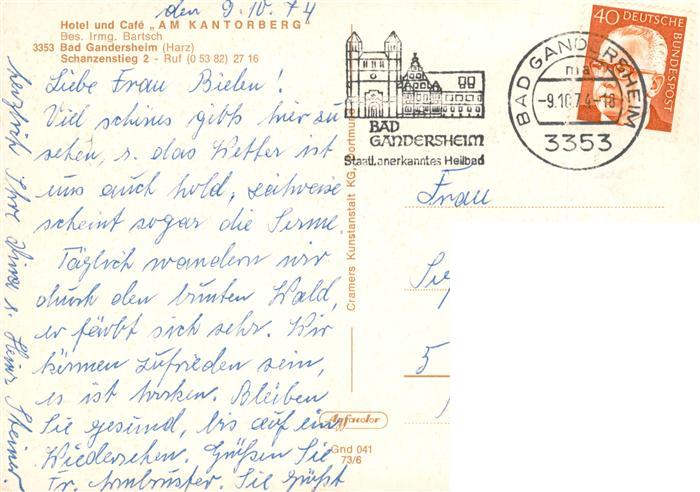 den 9.10.74
Hotel und Café „AM KANTORBERG"
Bes. Irmg. Bartsch
3353 Bad Gandersheim (Harz)
Schanzenstieg 2 - Ruf (0 53 82) 27 16
Liebe Frau Bielen!
Viel schönes gibts hier zu
sehen, u. das Wetter ist
uns auch hold, zeitweise
scheint sogar die Sonne.
Täglich wandern wir
durch den bunten Wald,
er färbt sich sehr. Wir
können zufrieden sein,
es ist trocken. Bleiben
Sie gesund, bis auf ein
Wiedersehen. Grüßen Sie
Fr. Armbruster. Sie grüßt
herzlich Ihre u. Heinz Steiner.
Cramers Kunstanstalt KG, Dortmund
Agfacolor
Gnd 041
73/6
BAD
GANDERSHEIM
Staatl. anerkanntes Heilbad
BAD GANDERSHEIM
ma
-9.10.74-18
3353
40 DEUTSCHE BUNDESPOST
Frau
5